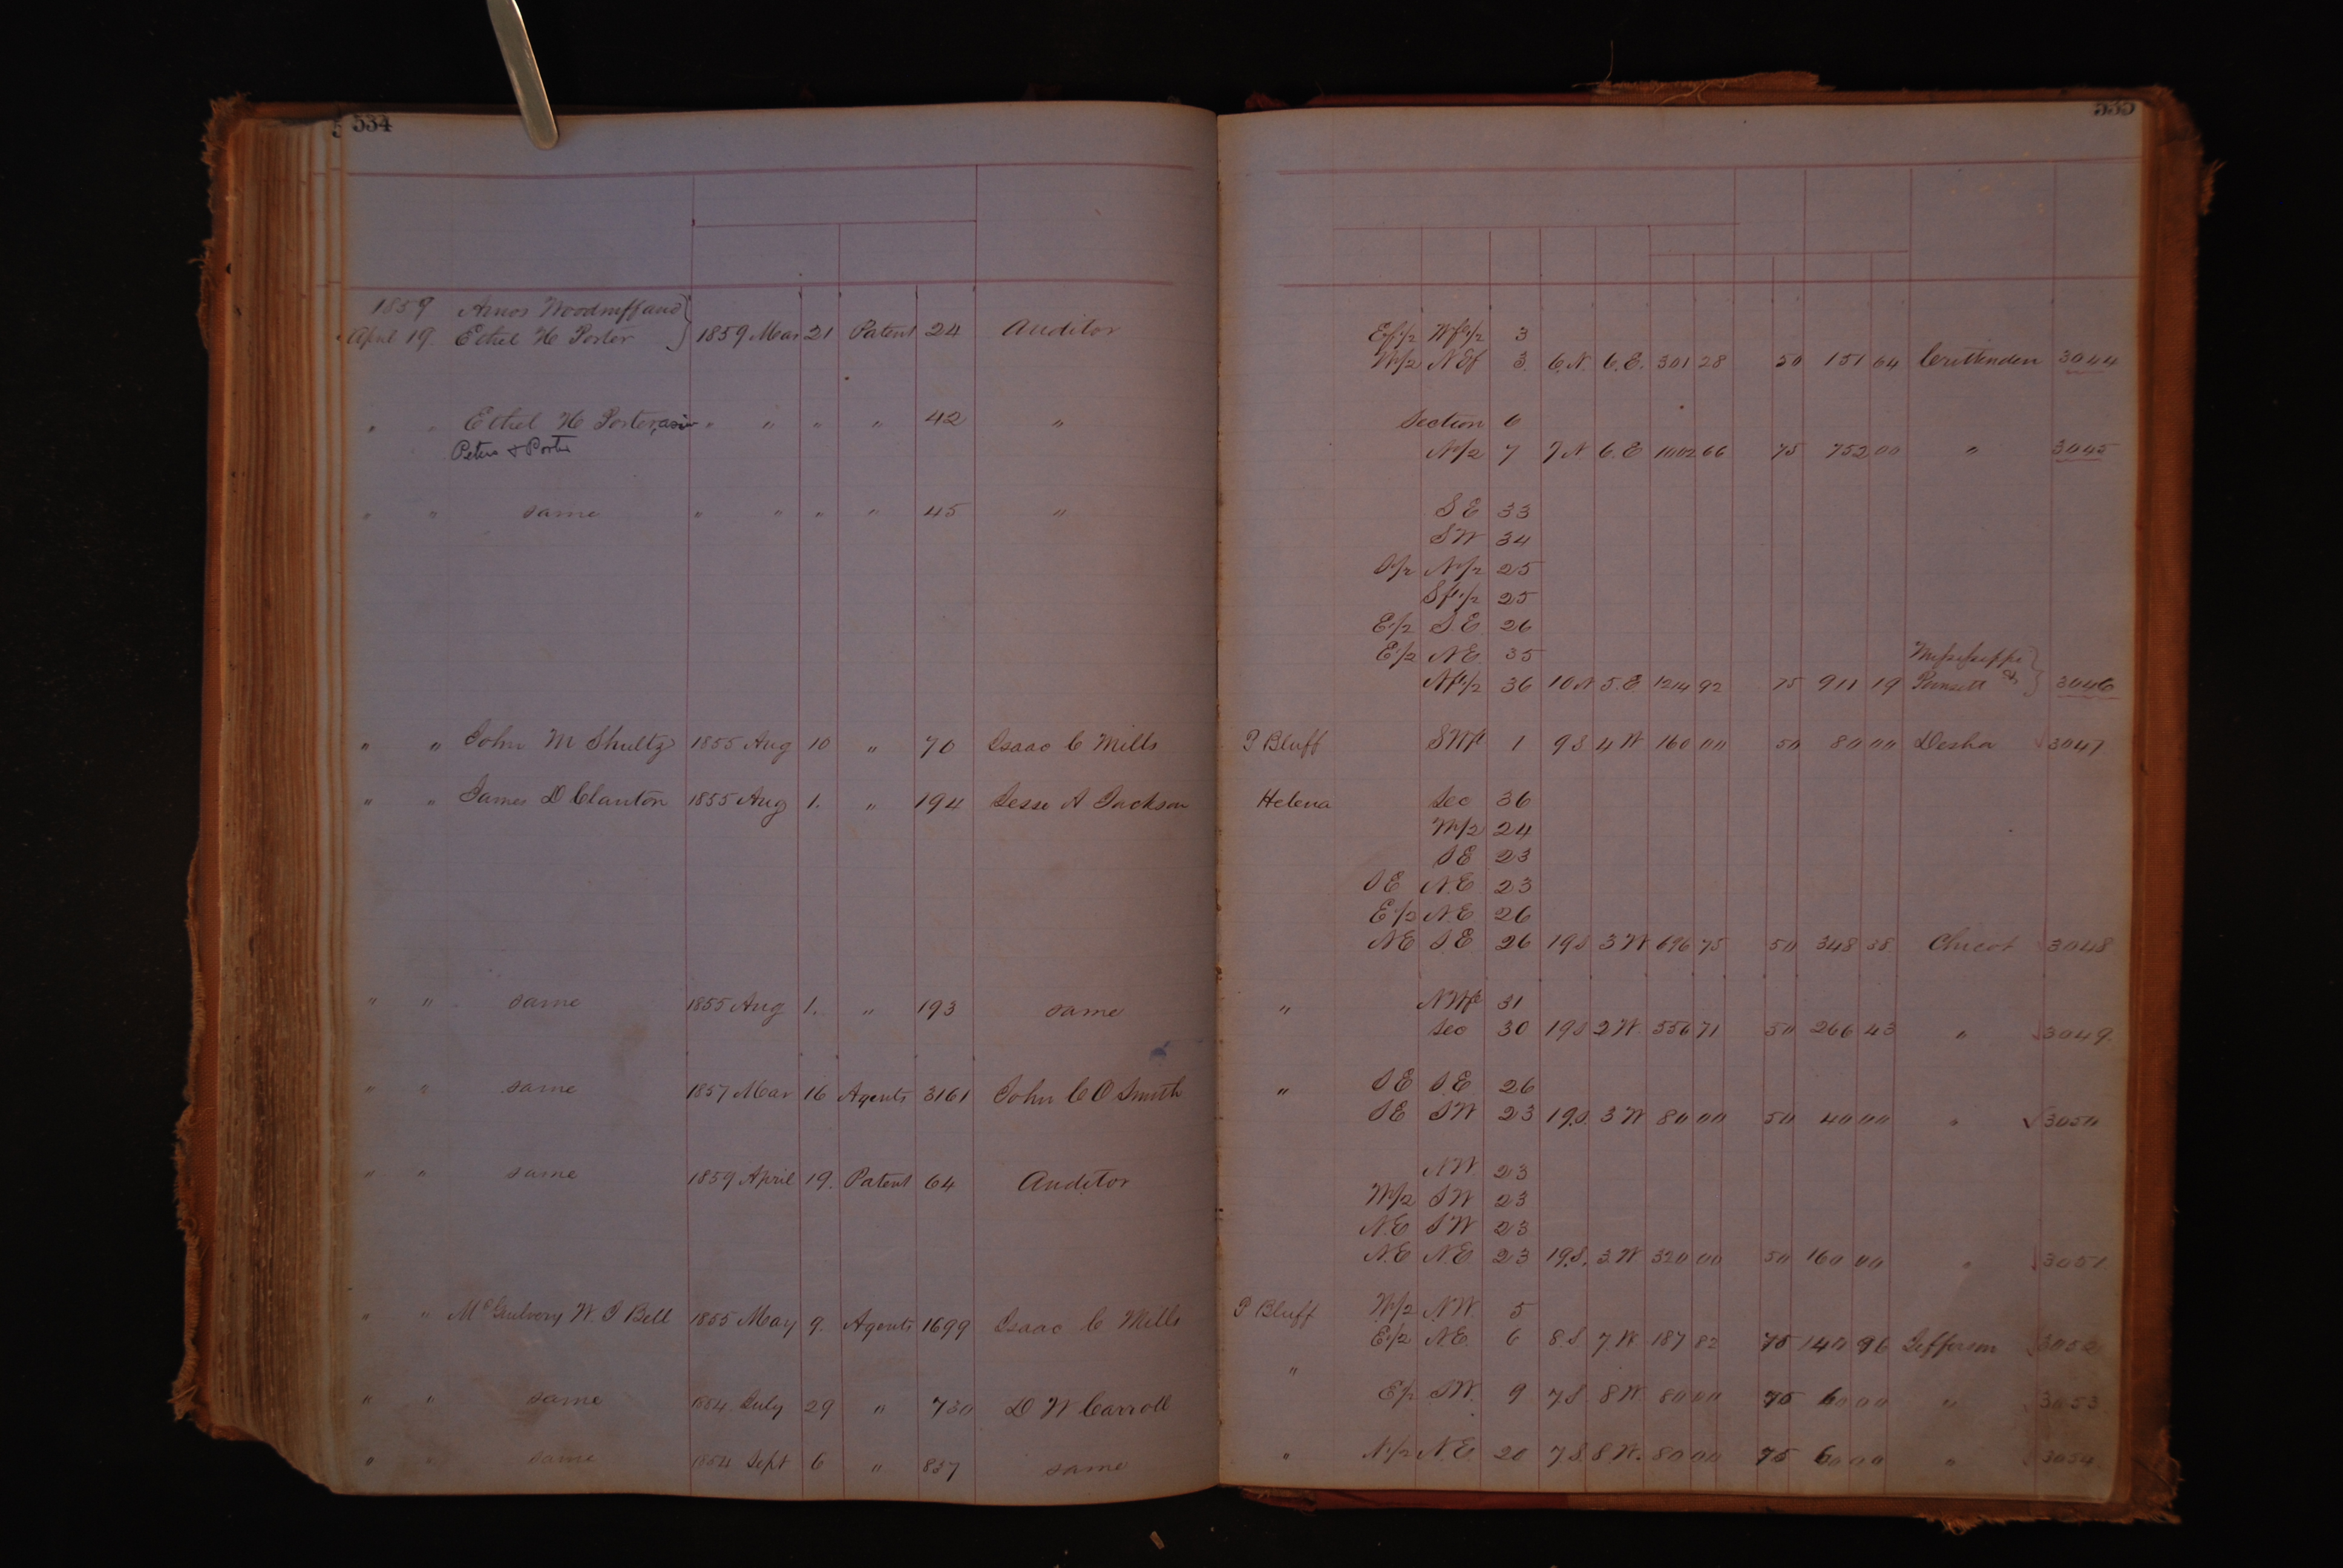 534
1859 Amos Woodruff and
April 19. Ethel H Porter 1859 Mar 21 Patent 24 Auditor
" " Ethel H Porter, asin " " " " 42 "
Peters & Porter
" " same " " " " 45 "
" " John M Shultz 1855 Aug 10 " 70 Isaac C Mills
" " James D Clanton 1855 Aug 1. " 194 Jesse A Jackson
" " same 1855 Aug 1. " 193 same
" " same 1857 Mar 16 Agents 3161 John C O Smith
" " same 1859 April 19. Patent 64 Auditor
" " W. I Bell 1855 May 9. Agents 1699 Isaac C Mills
" " same 1854 July 29 " 730 D W Carroll
" " same 1854 Sept 6 " 857 same
535
E fl 1/2 W fl 1/2 3
W 1/2 N E fl 3. 6. N. 6. E. 301 28 50 151 64 Crittenden 3044
Section 6
N 1/2 7 7 N 6. E 1002 66 75 752 00 " 3045
S E 33
S W 34
S 1/2 N 1/2 25
S fl 1/2 25
E 1/2 S. E 26
E 1/2 N E. 35 Missisippi
N fl 1/2 36 10 N 5. E 1214 92 75 911 19 Poinsett Cos 3046
P Bluff S W fl 1 9 S 4 W 160 00 50 80 00 Desha 3047
Helena Sec 36
W 1/2 24
S E 23
S E N. E. 23
E 1/2 N. E 26
N E S. E. 26 19 S 3 W 696 75 50 348 38 Chicot 3048
" N W fl 31
Sec 30 19 S 2 W. 556 71 50 266 43 " 3049.
" S E S. E 26
S E S W 23 19. S. 3 W 80 00 50 40 00 " ✓ 3050
N W 23
W 1/2 S W 23
N. E S W 23
N. E N. E 23 19. S. 3. W 320 00 50 160 00 " 3051
P Bluff W 1/2 N. W. 5
E 1/2 N. E. 6 8. S 7 W 187 82 75 140 96 Jefferson 3052
" E 1/2 S W. 9 7 S. 8 W. 80 00 75 60 00 " 3053
" N 1/2 N. E 20 7 S. 8 W. 80 00 75 60 00 " 3054